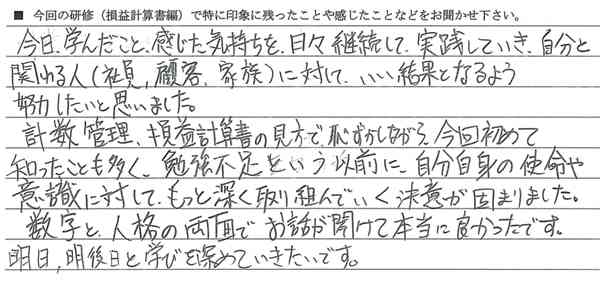 ■ 今回の研修（損益計算書編）で特に印象に残ったことや感じたことなどをお聞かせ下さい。
今日、学んだこと、感じた気持ちを、日々継続して、実践していき、自分と
関わる人（社員、顧客、家族）に対して、いい結果となるよう
努力したいと思いました。
計数管理、損益計算書の見方で、恥ずかしながら、今回初めて
知ったことも多く、勉強不足という以前に、自分自身の使命や
意識に対して、もっと深く取り組んでいく決意が固まりました。
数字と、人格の両面でお話が聞けて本当に良かったです。
明日、明後日と学びを深めていきたいです。